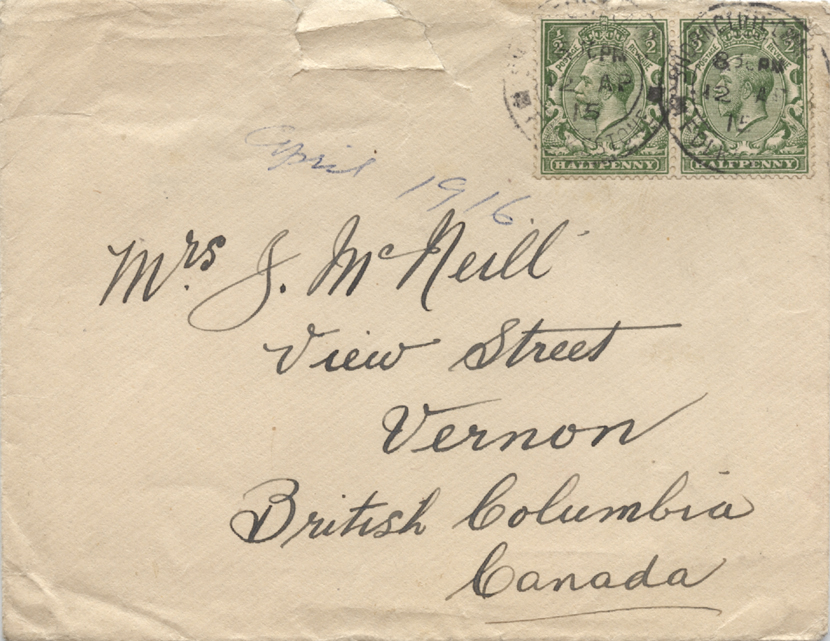 ½ ½ ½ ½
POSTAGE REVENUE POSTAGE REVENUE
PM
12 AP
15
8 PM
12 A
15
HALFPENNY HALFPENNY
April 1916
Mrs J. McNeill
View Street
Vernon
British Columbia
Canada